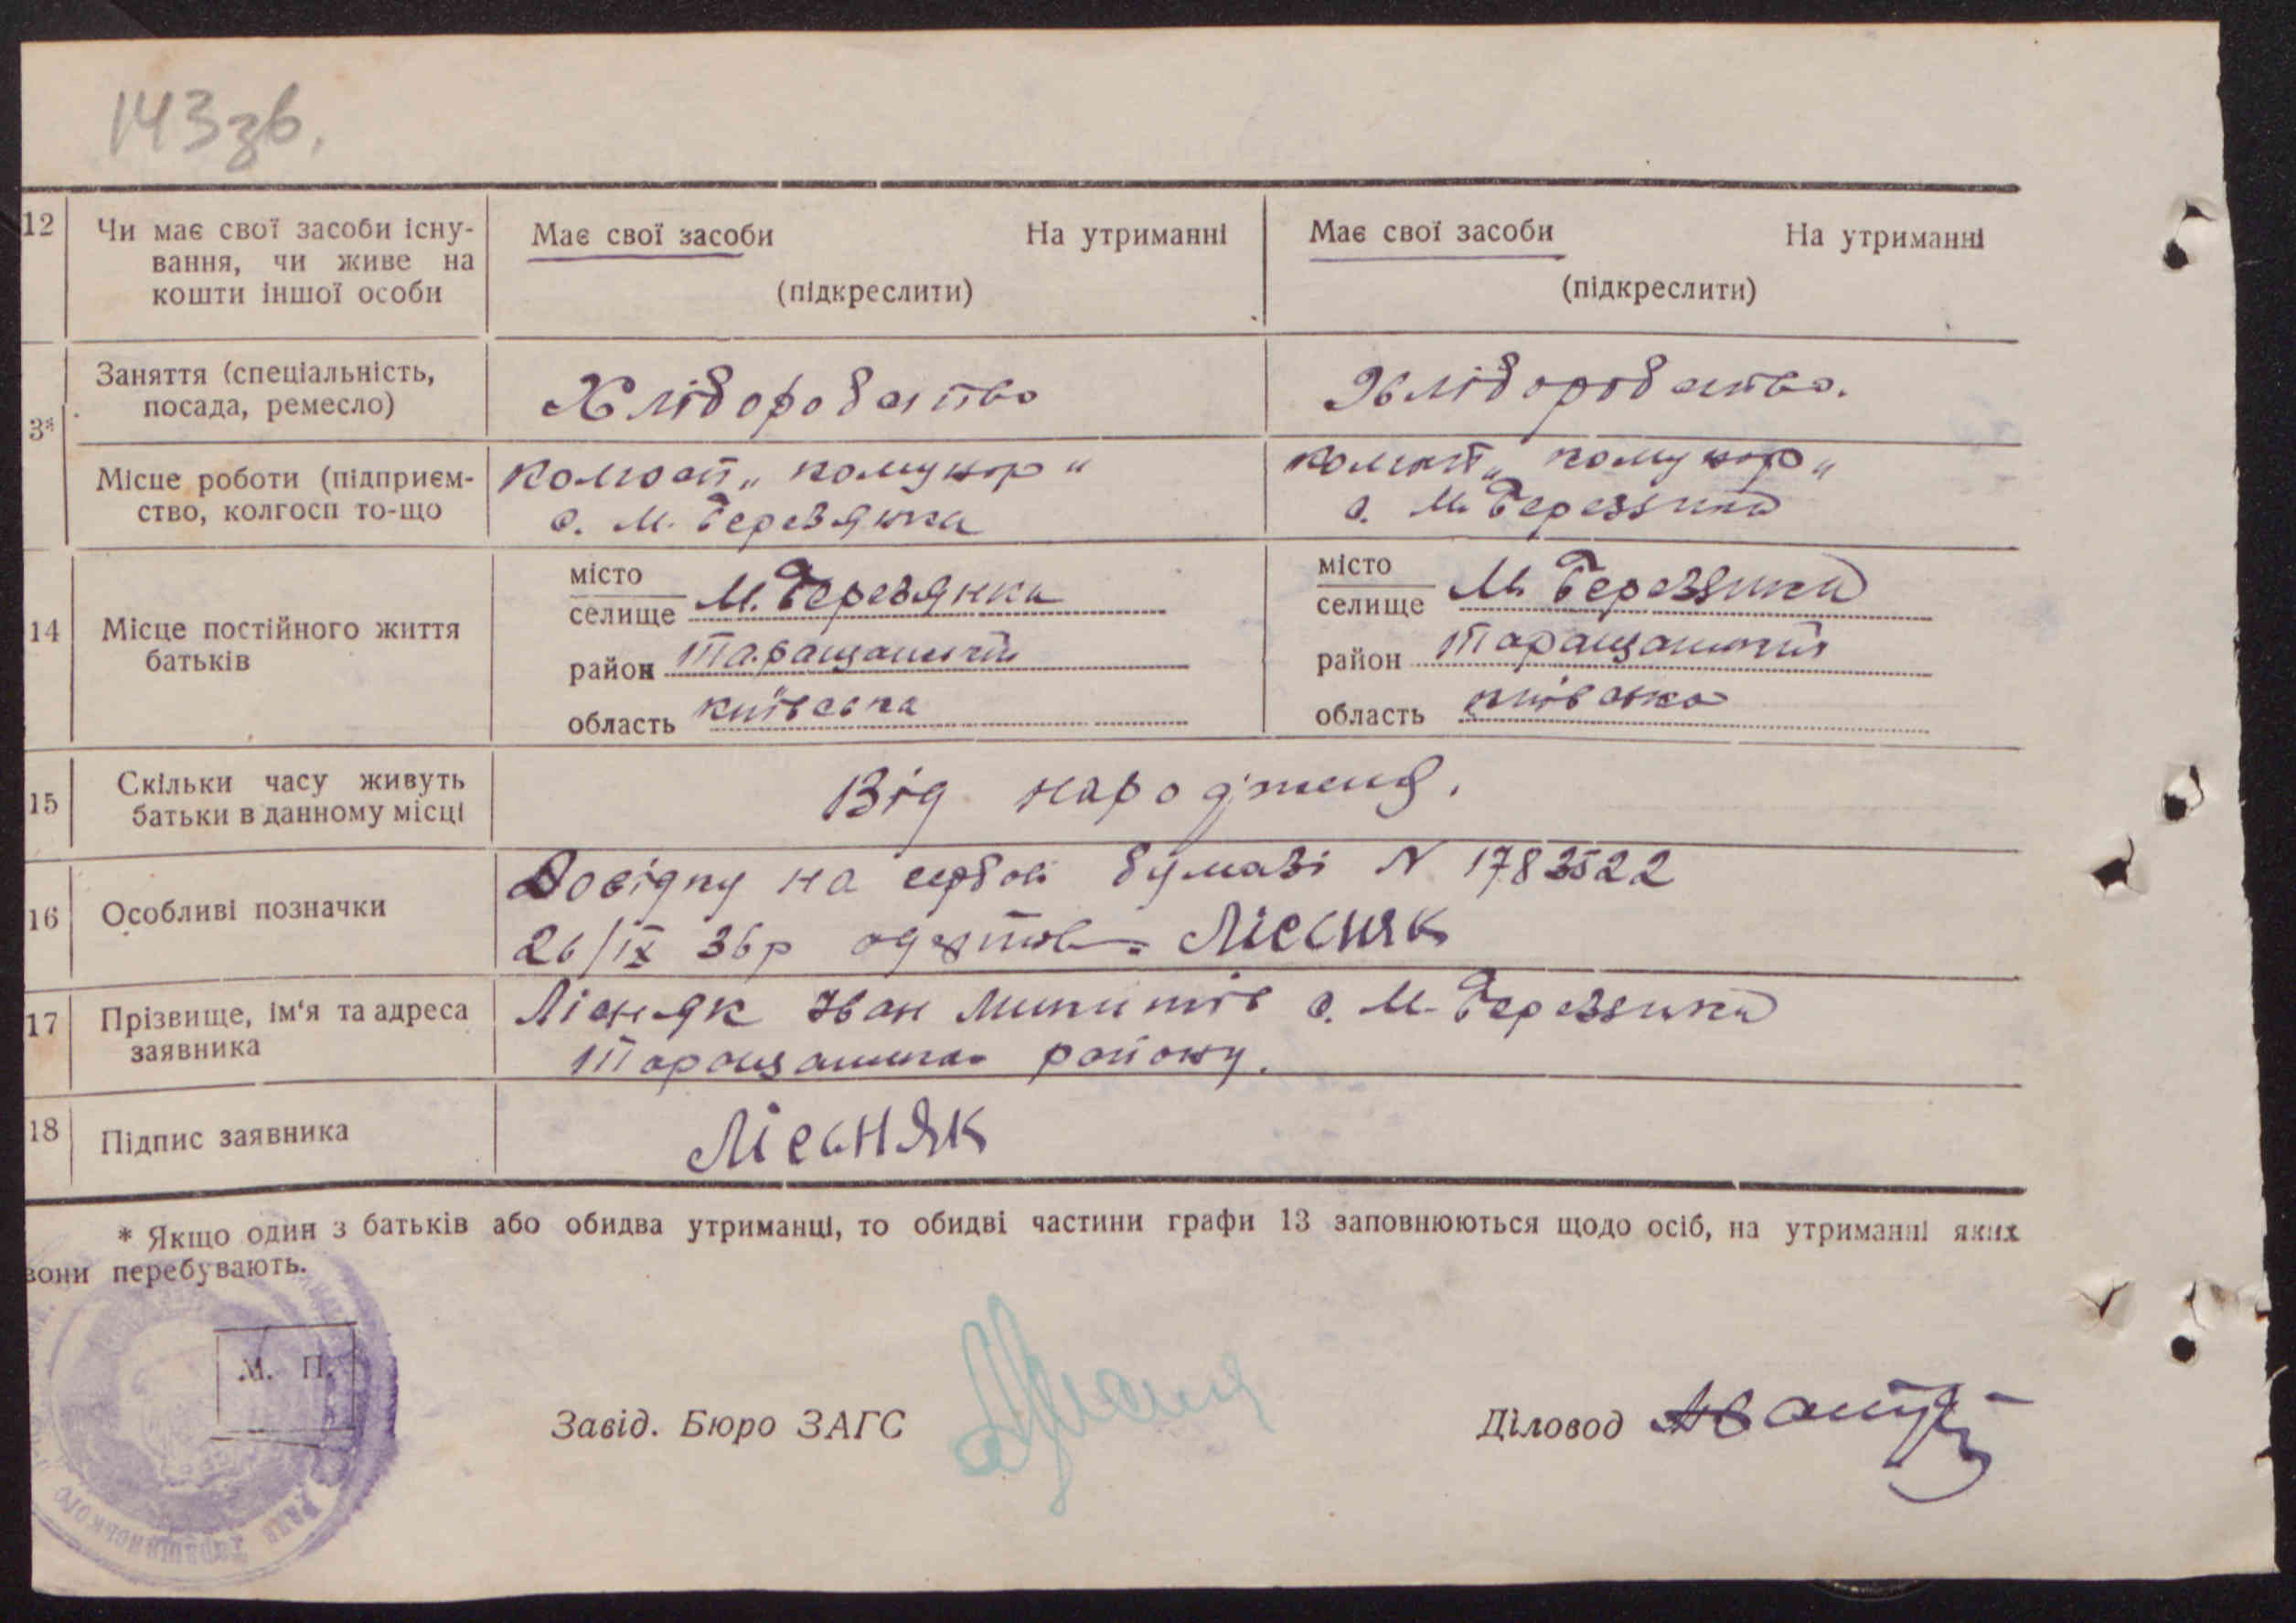 143зв.
12
Чи має свої засоби існу-
вання, чи живе на
кошти іншої особи
Має свої засоби На утриманні
(підкреслити)
Має свої засоби На утриманні
(підкреслити)
13*
Заняття (спеціальність,
посада, ремесло)
Хліборобство
Хліборобство.
Місце роботи (підприєм-
ство, колгосп то-що
колгосп „комунар“
с. М. Березянка
колгосп „комунар„
с. М. Березянка
14
Місце постійного життя
батьків
місто
селище М. Березянка
район Таращанський
область київська
місто
селище М. Березянка
район Таращанський
область київська
15
Скільки часу живуть
батьки в данному місці
Від народженя.
16
Особливі позначки
Довідку на гербові бумазі N 1783522
26/IX 36р одержав Лієсняк
17
Прізвище, ім'я та адреса
заявника
Лісняк Іван Микитів с. М. Березянка
Таращанського району.
18
Підпис заявника
Лієсняк
* Якщо один з батьків або обидва утриманці, то обидві частини графи 13 заповнюються щодо осіб, на утриманні яких
вони перебувають.
М. П.
Завід. Бюро ЗАГС
Діловод
Таращанського